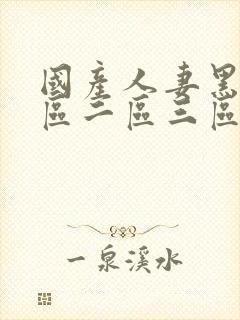 國產人妻黑
區二區三區
一泉溪水